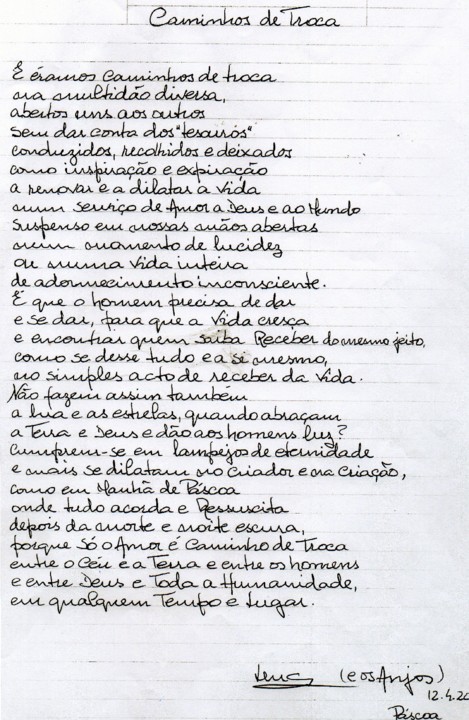 Caminhos de Troca
E éramos Caminhos de troca
na multidão diversa,
abertos uns aos outros
sem dar conta dos "tesouros"
conduzidos, recolhidos e deixados
como inspiração e expiração
a renovar e a dilatar a Vida
num serviço de Amor a Deus e ao Mundo
Suspenso em nossas mãos abertas
num momento de lucidez
ou numa Vida inteira
de adormecimento inconsciente.
É que o homem precisa de dar
e se dar, para que a Vida cresça
e encontrar quem saiba Receber do mesmo jeito,
como se desse tudo e a si mesmo,
no simples acto de receber da Vida.
Não fazem assim também
a lua e as estrelas, quando abraçam
a Terra e Deus e dão aos homens luz?
Cumprem-se em lampejos de eternidade
e mais se dilatam no Criador e na Criação,
como em Manhã de Páscoa
onde tudo acorda e Ressuscita
depois da morte e noite escura,
porque só o Amor é Caminho de Troca
entre o Céu e a Terra e entre os homens
e entre Deus e Toda a Humanidade,
em qualquer Tempo e Lugar.
(e os Anjos)
12.4.20
Páscoa